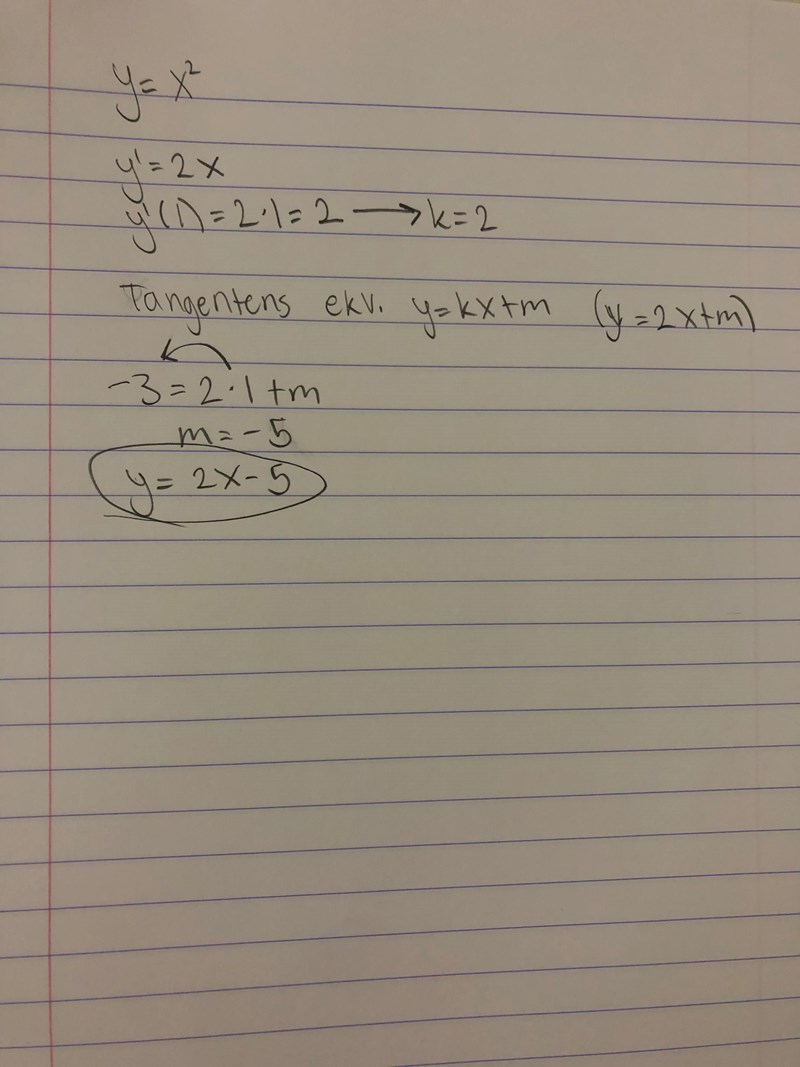 y = x²
y' = 2x
y'(1) = 2·1 = 2 → k = 2
Tangentens ekv. y = kx+m (y = 2x+m)
-3 = 2·1+m
m = -5
y = 2x-5